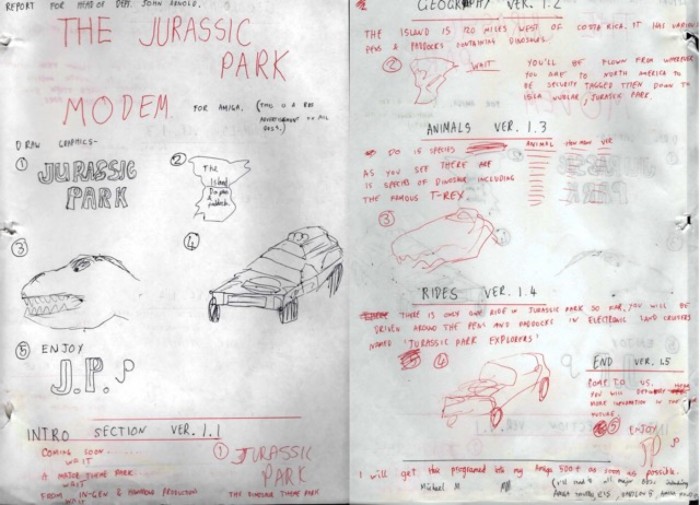 REPORT FOR HEAD OF DEPT. JOHN ARNOLD.
THE JURASSIC
PARK
MODEM
FOR AMIGA. (THIS IS A BBS
ADVERTISMENT ON ALL
BBSS.)
DRAW GRAPHICS-
① JURASSIC
PARK
② The
Island
③
④
⑤ ENJOY
J.P.
INTRO SECTION VER. 1.1
COMING SOON
WAIT
A MAJOR THEME PARK
WAIT
FROM IN-GEN & HAMMOND PRODUCTION
WAIT
① JURASSIC
PARK
THE DINOSAUR THEME PARK
GEOGRAPHY VER. 1.2
THE ISLAND IS 120 MILES WEST OF COSTA RICA. IT HAS VARIOUS
PENS & PADDOCKS CONTAINING DINOSAURS.
② WAIT
YOU'LL BE FLOWN FROM WHEREVER
YOU ARE TO NORTH AMERICA TO
BE SECURITY TAGGED THEN DOWN TO
ISLA NUBLAR, JURASSIC PARK.
ANIMALS VER. 1.3
DO 15 SPECIES
ANIMAL HOW MANY VER
AS YOU SEE THERE ARE
15 SPECIES OF DINOSAUR INCLUDING
THE FAMOUS T-REX
③
RIDES VER. 1.4
THERE IS ONLY ONE RIDE IN JURASSIC PARK SO FAR, YOU WILL BE
DRIVEN AROUND THE PENS AND PADDOCKS IN ELECTRONIC LAND CRUISERS
NAMED 'JURASSIC PARK EXPLORERS'
④
END VER. 1.5
TO US.
YOU WILL
MORE INFORMATION IN THE
FUTURE.
⑤ ENJOY
JP
I will get this programed into my Amiga 500+ as soon as possible.
Michael M